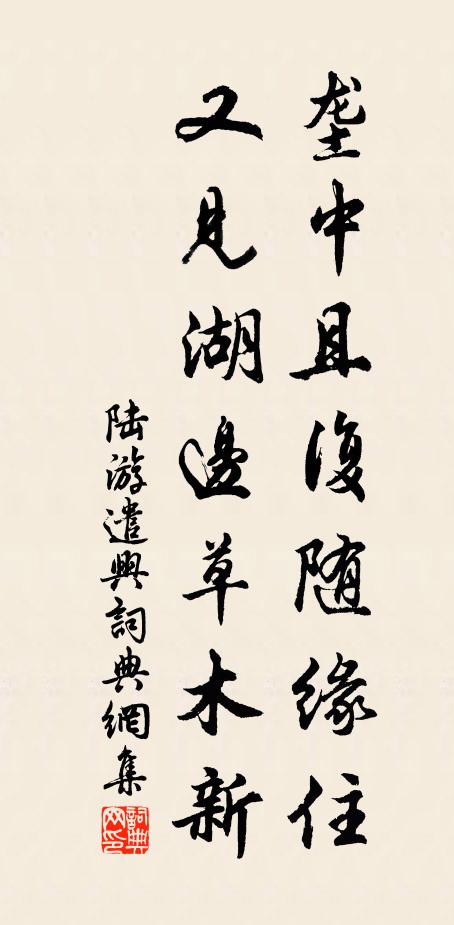 垄中且復随緣住
又見湖邊草木新
陆游遣興詞典網集
詞典网印